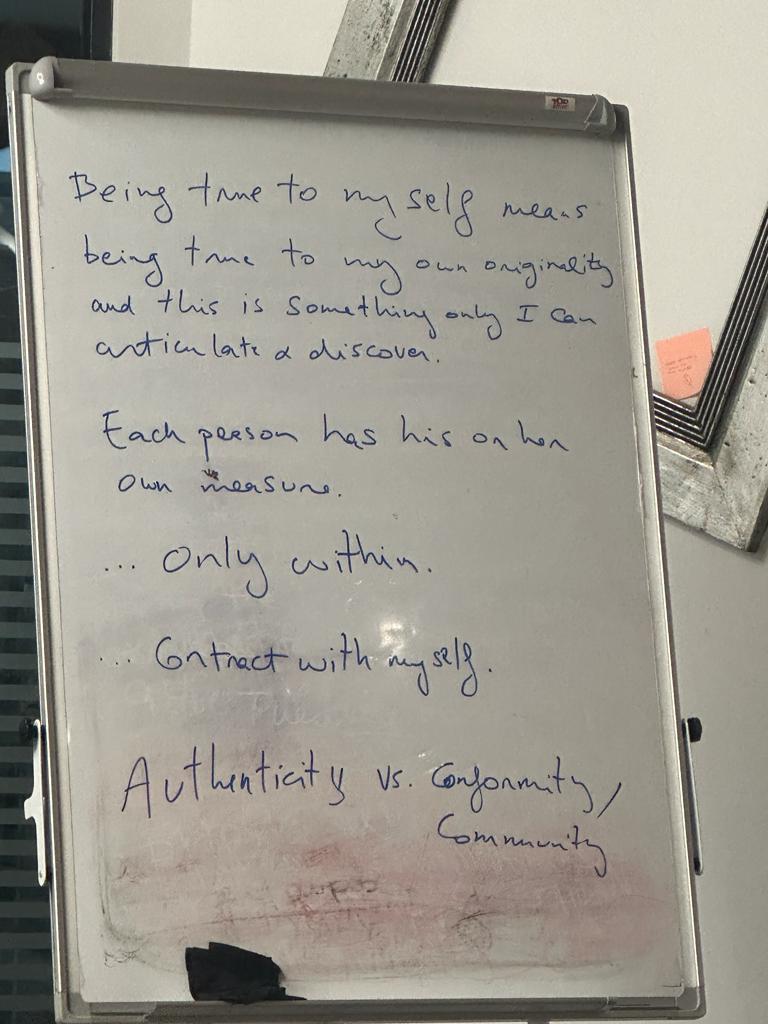 Being true to my self means
being true to my own originality
and this is something only I can
articulate & discover.
Each person has his or her
own measure.
... Only within.
... Contract with myself.
Authenticity vs. Conformity,
Community